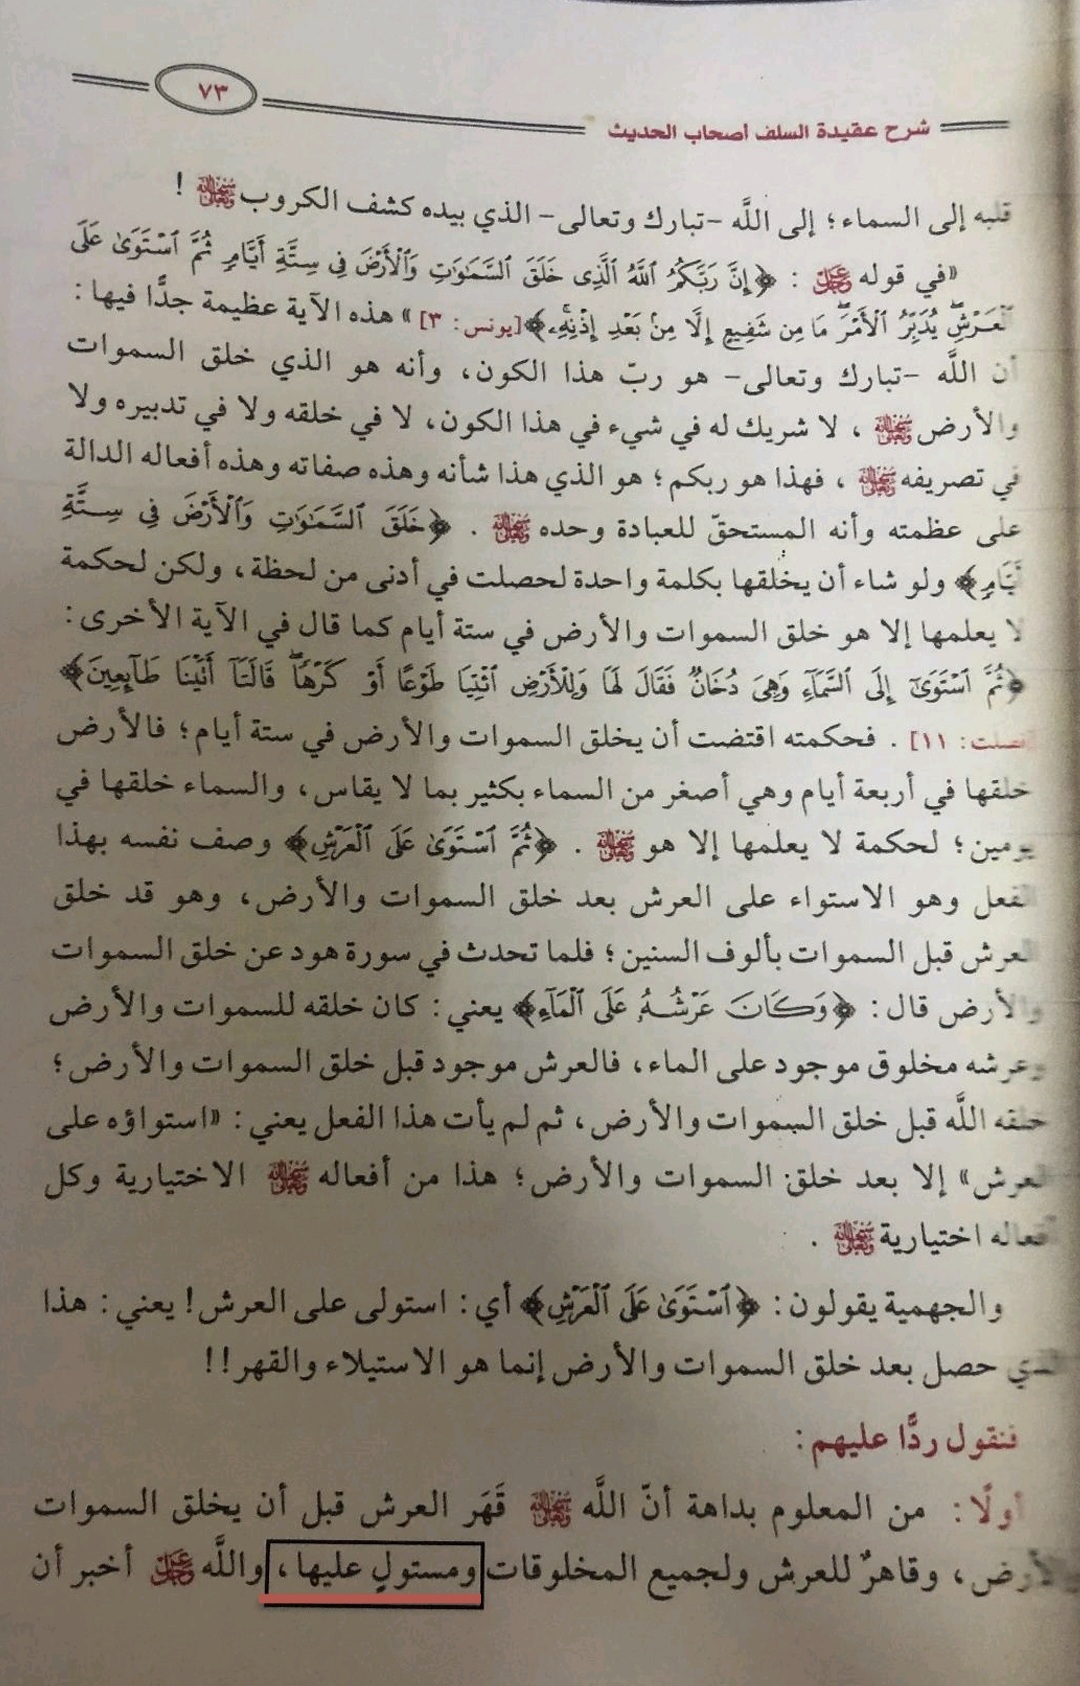 ٧٣
شرح عقيدة السلف أصحاب الحديث
قلبه إلى السماء؛ إلى اللَّه -تبارك وتعالى- الذي بيده كشف الكروب سبحانه وتعالى !
«في قوله عز وجل : ﴿إِنَّ رَبَّكُمُ ٱللَّهُ ٱلَّذِى خَلَقَ ٱلسَّمَٰوَٰتِ وَٱلْأَرْضَ فِى سِتَّةِ أَيَّامٍ ثُمَّ ٱسْتَوَىٰ عَلَى
ٱلْعَرْشِ يُدَبِّرُ ٱلْأَمْرَ مَا مِن شَفِيعٍ إِلَّا مِنۢ بَعْدِ إِذْنِهِۦ﴾[يونس: ٣]» هذه الآية عظيمة جدًّا فيها:
أن اللَّه -تبارك وتعالى- هو ربّ هذا الكون، وأنه هو الذي خلق السموات
والأرض سبحانه وتعالى ، لا شريك له في شيء في هذا الكون، لا في خلقه ولا في تدبيره ولا
في تصريفه سبحانه وتعالى ، فهذا هو ربكم؛ هو الذي هذا شأنه وهذه صفاته وهذه أفعاله الدالة
على عظمته وأنه المستحقّ للعبادة وحده سبحانه وتعالى . ﴿خَلَقَ ٱلسَّمَٰوَٰتِ وَٱلْأَرْضَ فِى سِتَّةِ
أَيَّامٍ﴾ ولو شاء أن يخلقها بكلمة واحدة لحصلت في أدنى من لحظة، ولكن لحكمة
لا يعلمها إلا هو خلق السموات والأرض في ستة أيام كما قال في الآية الأخرى:
﴿ثُمَّ ٱسْتَوَىٰٓ إِلَى ٱلسَّمَآءِ وَهِىَ دُخَانٌ فَقَالَ لَهَا وَلِلْأَرْضِ ٱئْتِيَا طَوْعًا أَوْ كَرْهًا قَالَتَآ أَتَيْنَا طَآئِعِينَ﴾
[فصلت: ١١] . فحكمته اقتضت أن يخلق السموات والأرض في ستة أيام؛ فالأرض
خلقها في أربعة أيام وهي أصغر من السماء بكثير بما لا يقاس، والسماء خلقها في
يومين؛ لحكمة لا يعلمها إلا هو سبحانه وتعالى . ﴿ثُمَّ ٱسْتَوَىٰ عَلَى ٱلْعَرْشِ﴾ وصف نفسه بهذا
الفعل وهو الاستواء على العرش بعد خلق السموات والأرض، وهو قد خلق
العرش قبل السموات بألوف السنين؛ فلما تحدث في سورة هود عن خلق السموات
والأرض قال: ﴿وَكَانَ عَرْشُهُۥ عَلَى ٱلْمَآءِ﴾ يعني: كان خلقه للسموات والأرض
وعرشه مخلوق موجود على الماء، فالعرش موجود قبل خلق السموات والأرض؛
خلقه اللَّه قبل خلق السموات والأرض، ثم لم يأت هذا الفعل يعني: «استواؤه على
العرش» إلا بعد خلق السموات والأرض؛ هذا من أفعاله سبحانه وتعالى الاختيارية وكل
أفعاله اختيارية سبحانه وتعالى .
والجهمية يقولون: ﴿ٱسْتَوَىٰ عَلَى ٱلْعَرْشِ﴾ أي: استولى على العرش! يعني: هذا
الذي حصل بعد خلق السموات والأرض إنما هو الاستيلاء والقهر!!
فنقول ردًّا عليهم:
أولًا: من المعلوم بداهة أنّ اللَّه سبحانه وتعالى قَهَر العرش قبل أن يخلق السموات
والأرض، وقاهرٌ للعرش ولجميع المخلوقات ومستولٍ عليها، واللَّه عز وجل أخبر أن